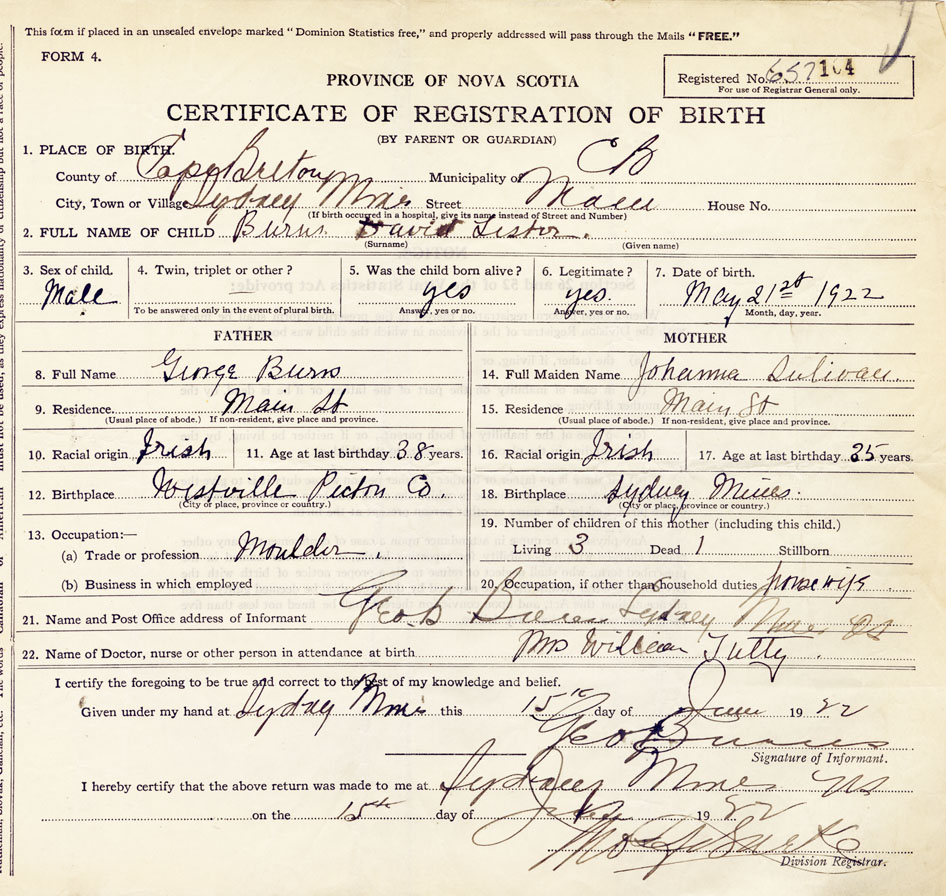 This form if placed in an unsealed envelope marked "Dominion Statistics free," and properly addressed will pass through the Mails "FREE."
FORM 4.
PROVINCE OF NOVA SCOTIA
Registered No. 657 104
For use of Registrar General only.
CERTIFICATE OF REGISTRATION OF BIRTH
(BY PARENT OR GUARDIAN)
1. PLACE OF BIRTH.
County of Cape Breton Municipality of CB
City, Town or Village Sydney Mines Street Main House No.
(If birth occurred in a hospital, give its name instead of Street and Number)
2. FULL NAME OF CHILD Burns David Lister.
(Surname) (Given name)
3. Sex of child. 4. Twin, triplet or other? 5. Was the child born alive? 6. Legitimate? 7. Date of birth.
Male — yes yes. May 21st 1922
To be answered only in the event of plural birth. Answer, yes or no. Answer, yes or no. Month, day, year.
FATHER MOTHER
8. Full Name George Burns 14. Full Maiden Name Johanna Sulivan.
9. Residence Main St 15. Residence Main St
(Usual place of abode.) If non-resident, give place and province. (Usual place of abode.) If non-resident, give place and province.
10. Racial origin Irish 11. Age at last birthday 38 years. 16. Racial origin Irish 17. Age at last birthday 35 years.
12. Birthplace Westville Picton Co. 18. Birthplace Sydney Mines.
(City or place, province or country.) (City or place, province or country.)
13. Occupation:— 19. Number of children of this mother (including this child.)
(a) Trade or profession Moulder. Living 3 Dead 1 Stillborn
(b) Business in which employed 20. Occupation, if other than household duties housewife
21. Name and Post Office address of Informant Geo. Burns Sydney Mines
22. Name of Doctor, nurse or other person in attendance at birth Mrs William Tutty.
I certify the foregoing to be true and correct to the best of my knowledge and belief.
Given under my hand at Sydney Mines this 15th day of June 1922
Geo Burns
Signature of Informant.
I hereby certify that the above return was made to me at Sydney Mines NS
on the 15th day of 1922
Division Registrar.